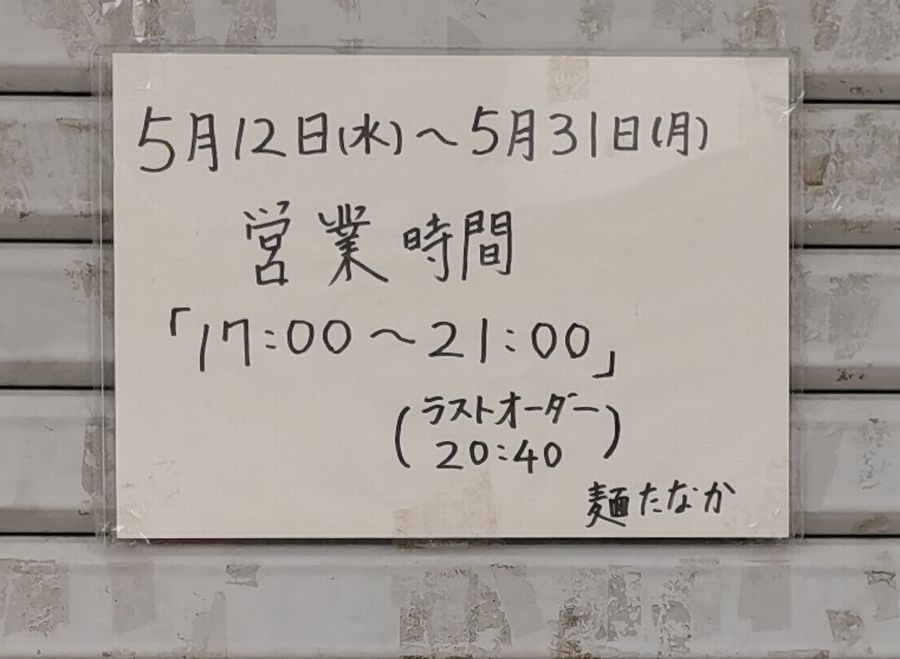 5月12日(水)〜5月31日(月)
営業時間
「17:00〜21:00」
(ラストオーダー
20:40)
麺たなか